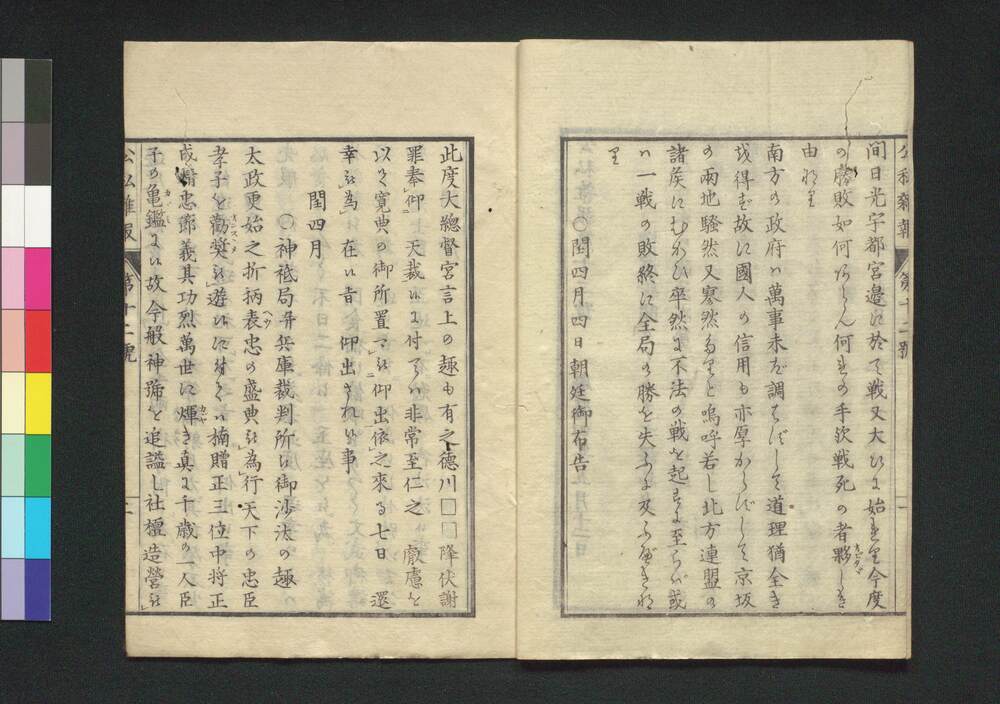 公私雜報 第十二號 一
間日光宇都宮邊に於て戰又大ひに始まり今度
の勝敗如何あらん何れの手次戰死の者夥しき
由なり
南方の政府は萬事未だ調はずして道理猶全き
を得ず故に國人の信用も亦厚からずして京坂
の兩地騷然又寒然たりと嗚呼若し北方連盟の
諸侯にむかひ卒然に不法の戰を起すに至らば或
は一戰の敗終に全局の勝を失ふに及ふべきな
り
○閏四月四日朝廷御布告
此度大總督宮言上の趣も有之德川□□降伏謝
罪奉仰 天裁に付ては非常至仁之 叡慮を
以て寬典の御所置可被仰出依之來る七日 還
幸被為在候旨仰出され候事
閏四月
○神祗局幷兵庫裁判所に御沙汰の趣
太政更始之折柄表忠の盛典被為行天下の忠臣
孝子を勸奬被遊候に付ては楠贈正三位中将正
成精忠節義其功烈萬世に輝き真に千歲の一人臣
子の亀鑑に候故今般神號を追謚し社檀造營被
公私雜報 第十二號 二